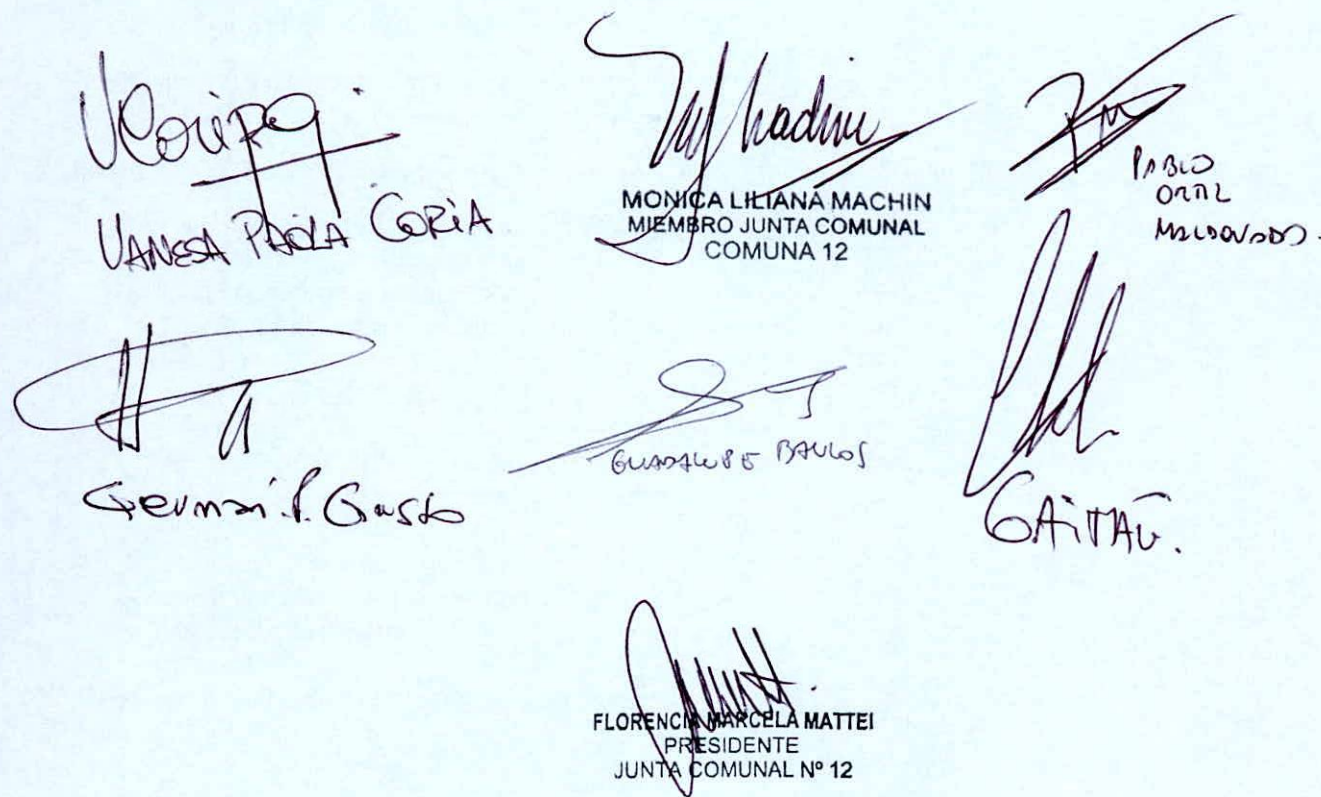 VANESA PAOLA CORIA
MONICA LILIANA MACHIN
MIEMBRO JUNTA COMUNAL
COMUNA 12
PABLO
ORTIZ
MALDONADO.
GUADALUPE BAULOS
GAITAN.
FLORENCIA MARCELA MATTEI
PRESIDENTE
JUNTA COMUNAL Nº 12